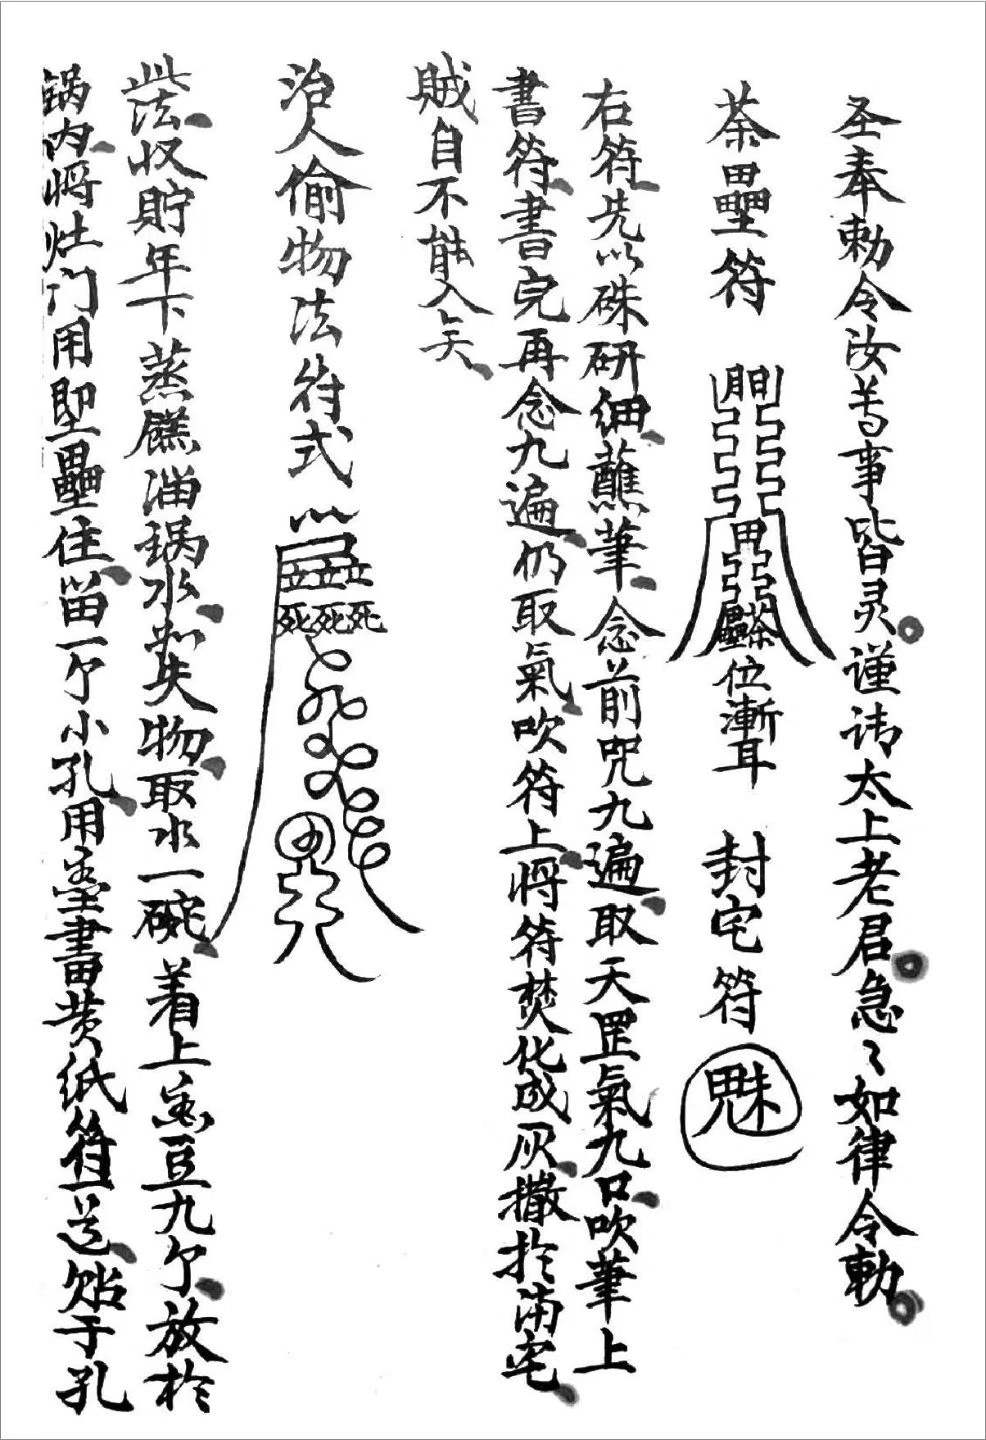 圣奉勅令汝等事皆灵谨请太上老君急〻如律令勅
荼壘符 位漸耳 封宅符 魁
右符先以硃研细蘸筆念前咒九遍取天罡氣九口吹筆上
書符書完再念九遍仍取氣吹符上将符焚化成灰撒扵满宅
賊自不能入矣
治人偷物法符式
死死死
此法収贮年下蒸饝溜锅水如失物取水一碗着上黑豆九个放扵
锅内将灶门用堲壘住留一个小孔用墨畫黄纸符一道贴于孔